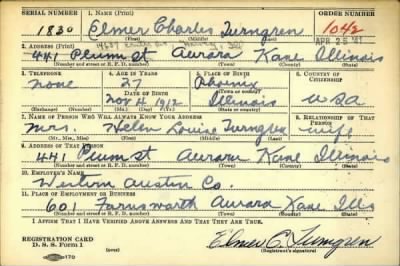 SERIAL NUMBER 1. NAME (Print) ORDER NUMBER
1830 Elmer Charles Turngren 1042
(First) (Middle) (Last) APR 25 '41
2. ADDRESS (Print)
441 Plum St Aurora Kane Illinois
(Number and street or R. F. D. number) (Town) (County) (State)
3. TELEPHONE 4. AGE IN YEARS 5. PLACE OF BIRTH 6. COUNTRY OF CITIZENSHIP
none 27 Phoenix
DATE OF BIRTH (Town or county)
Nov 4 1912 Illinois USA
(Exchange) (Number) (Mo.) (Day) (Yr.) (State or country)
7. NAME OF PERSON WHO WILL ALWAYS KNOW YOUR ADDRESS 8. RELATIONSHIP OF THAT PERSON
Mrs. Helen Louise Turngren wife
(Mr., Mrs., Miss) (First) (Middle) (Last)
9. ADDRESS OF THAT PERSON
441 Plum St Aurora Kane Illinois
(Number and street or R. F. D. number) (Town) (County) (State)
10. EMPLOYER'S NAME
Western Austin Co.
11. PLACE OF EMPLOYMENT OR BUSINESS
601 Farnsworth Aurora Kane Ills
(Number and street or R. F. D. number) (Town) (County) (State)
I AFFIRM THAT I HAVE VERIFIED ABOVE ANSWERS AND THAT THEY ARE TRUE.
REGISTRATION CARD
D. S. S. Form 1 Elmer C. Turngren
(Registrant's signature)